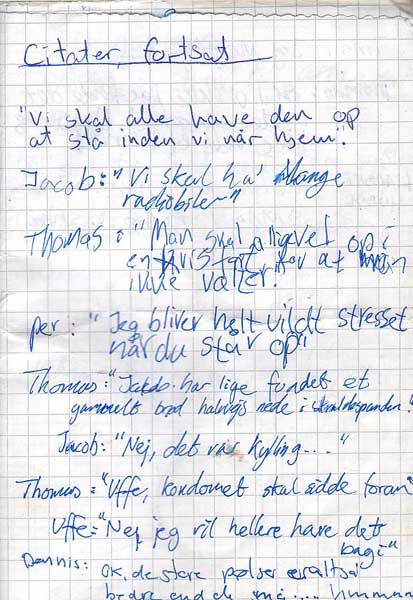 Citater, fortsat
"Vi skal alle have den op
at stå inden vi når hjem".
Jacob: "Vi skal ha' Mange
radiobiler"
Thomas: "Man skal alligevel op i
en for at man
ikke vælter."
per: "Jeg bliver helt vildt stresset
når du står op"
Thomas: "Jakob har lige fundet et
gammelt brød halvejs nede i skraldespanden."
Jacob: "Nej, det var kylling...."
Thomas: "Uffe, kondomet skal sidde foran"
Uffe: "Nej jeg vil hellere have det
bagi"
Dennis: ok, de store pølser
bedre end de små....